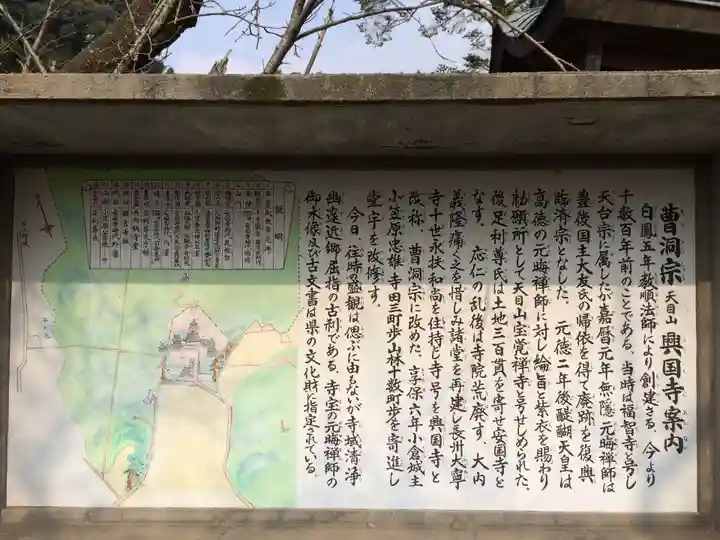 曹洞宗 天目山 興国寺案内
白鳳五年教順法師により創建さる。今より
千数百年前のことである。当時は福智寺と号し
天台宗に属したが嘉暦元年無隠元晦禅師は
豊後国主大友氏の帰依を得て廃跡を復興
臨済宗となした。元徳二年後醍醐天皇は
高徳の元晦禅師に対し綸旨と紫衣を賜わり
勅願所として天目山宝覚禅寺と号せしめられた、
後足利尊氏は土地三百貫を寄せ安国寺と
なす。応仁の乱後は寺院荒廃す。大内
義隆痛くこを惜しみ諸堂を再建し長州大寧
寺十世永扶和尚を住持とし寺号を興国寺と
改称、曹洞宗に改めた、享保六年小倉城主
小笠原忠雄寺田三町歩山林十数町歩を寄進し
堂宇を改修す。
今日、往時の盛観は偲ぶに由もないが寺域清浄
幽遠近郷屈指の古刹である。寺宝の元晦禅師の
御木像及び古文書は県の文化財に指定されている。
説明